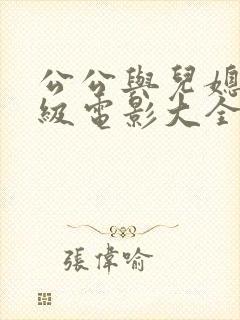 公公與兒媳
級電影大全
張偉喻